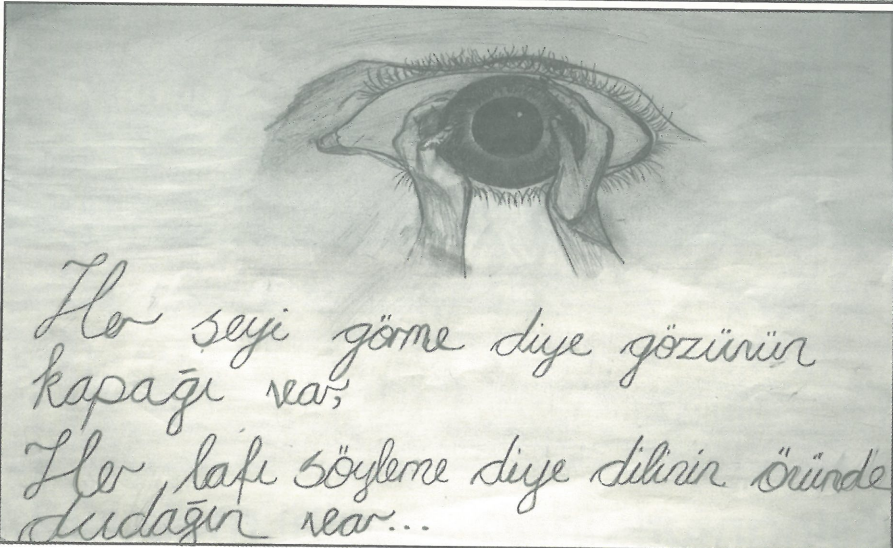 Her şeyi görme diye gözünün
kapağı var,
Her lafı söyleme diye dilinin önünde
dudağın var...